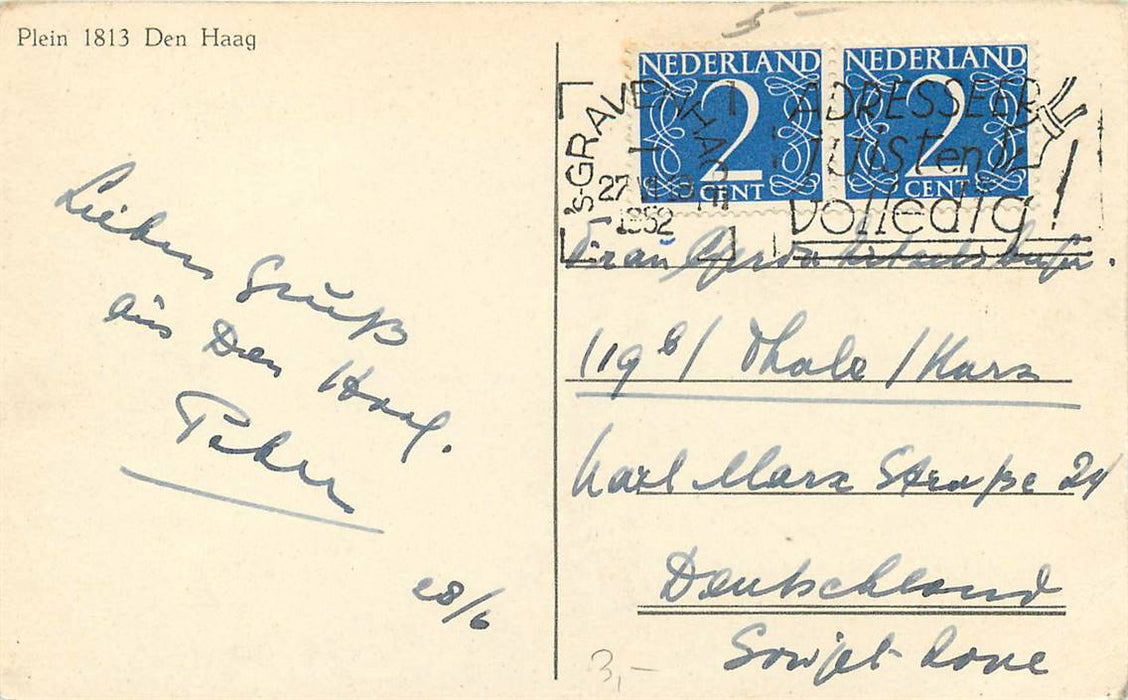 Plein 1813 Den Haag
NEDERLAND
2
CENT
NEDERLAND
2
CENT
's-GRAVENHAGE
27 VI
1952
ADRESSEER
juist en
volledig!
Lieben Gruß
aus Den Haag.
Peter
28/6
Frau Gerda
(19b) Thale / Harz
Karl Marx Straße 24
Deutschland
Sowjet-Zone
3,-